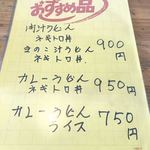 おすすめ品
肉汁うどん
ネギトロ丼
きのこ汁うどん 900円
ネギトロ丼
カレーうどん 950円
ネギトロ丼
カレーうどん 750円
ライス